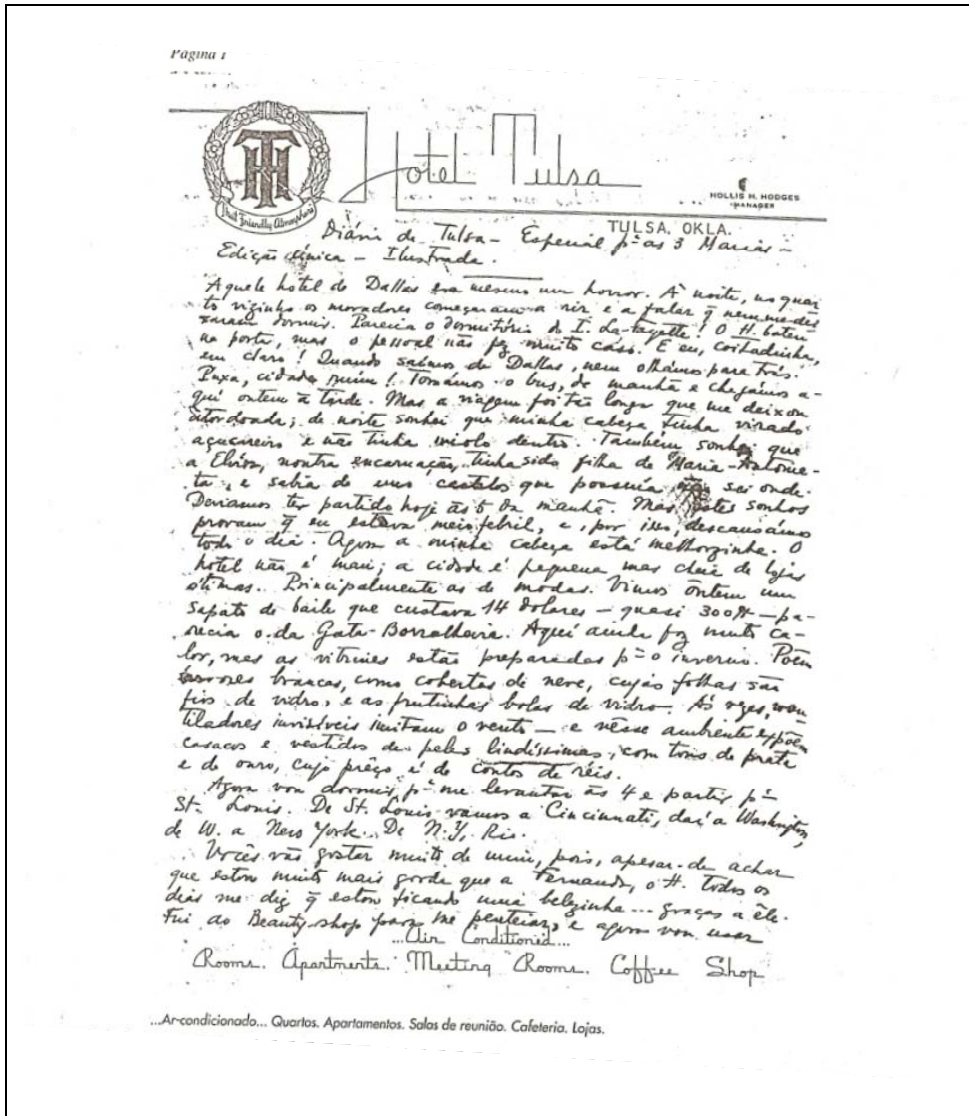 Página 1
TH
that Friendly Atmosphere
Hotel Tulsa
HOLLIS H. HODGES
MANAGER
TULSA, OKLA.
Diário de Tulsa – Especial pª as 3 Marias –
Edição única – Ilustrada.
Aquele hotel de Dallas era mesmo um horror. À noite, no quar
to vizinho os moradores começaram a rir e a falar q̃ nem me dei
xaram dormir. Parecia o dormitório do I. La-fayette! O H. bateu
na porta, mas o pessoal não fez muito caso. E eu, coitadinha,
em claro! Quando saímos de Dallas, nem olhámos para trás.
Puxa, cidade ruim! Tomámos o bus, de manhã e chegámos a-
qui ontem à tarde. Mas a viagem foi tão longa que me deixou
atordoada; de noite sonhei que minha cabeça tinha virado
açucareiro e não tinha miolo dentro. Também sonhei que
a Elvira, noutra encarnação, tinha sido filha de Maria-Antonie-
ta, e sabia de uns castelos que possuía não sei onde.
Devíamos ter partido hoje às 5 da manhã. Mas estes sonhos
provam q̃ eu estava meio febril, e, por isso, descansámos
todo o dia. Agora a minha cabeça está melhorzinha. O
hotel não é mau; a cidade é pequena mas cheia de lojas
ótimas. Principalmente as de modas. Vimos ontem um
sapato de baile que custava 14 dolares – quasi 300$ – pa-
recia o da Gata-Borralheira. Aqui ainda faz muito ca-
lor, mas as vitrines estão preparadas pª o inverno. Põem
árvores brancas, como cobertas de neve, cujas folhas são
fios de vidro, e as frutinhas bolas de vidro. Às vezes, ven
tiladores invisíveis imitam o vento – e nesse ambiente expõem
casacos e vestidos de peles lindíssimas, com tons de prata
e de ouro, cujo prêço é de contos de réis.
Agora vou dormir, pª me levantar às 4 e partir pª
St. Louis. De St. Louis vamos a Cincinnati, daí a Washington,
de W. a New York. De N.Y, Rio.
Vocês vão gostar muito de mim, pois, apesar de achar
que estou muito mais gorda que a Fernanda, o H. todos os
dias me diz q̃ estou ficando uma belezinha... graças a êle.
Fui ao Beauty-shop para me pentear, e agora vou usar
...Air Conditioned...
Rooms. Apartments. Meeting Rooms. Coffee Shop
...Ar-condicionado... Quartos. Apartamentos. Salas de reunião. Cafeteria. Lojas.